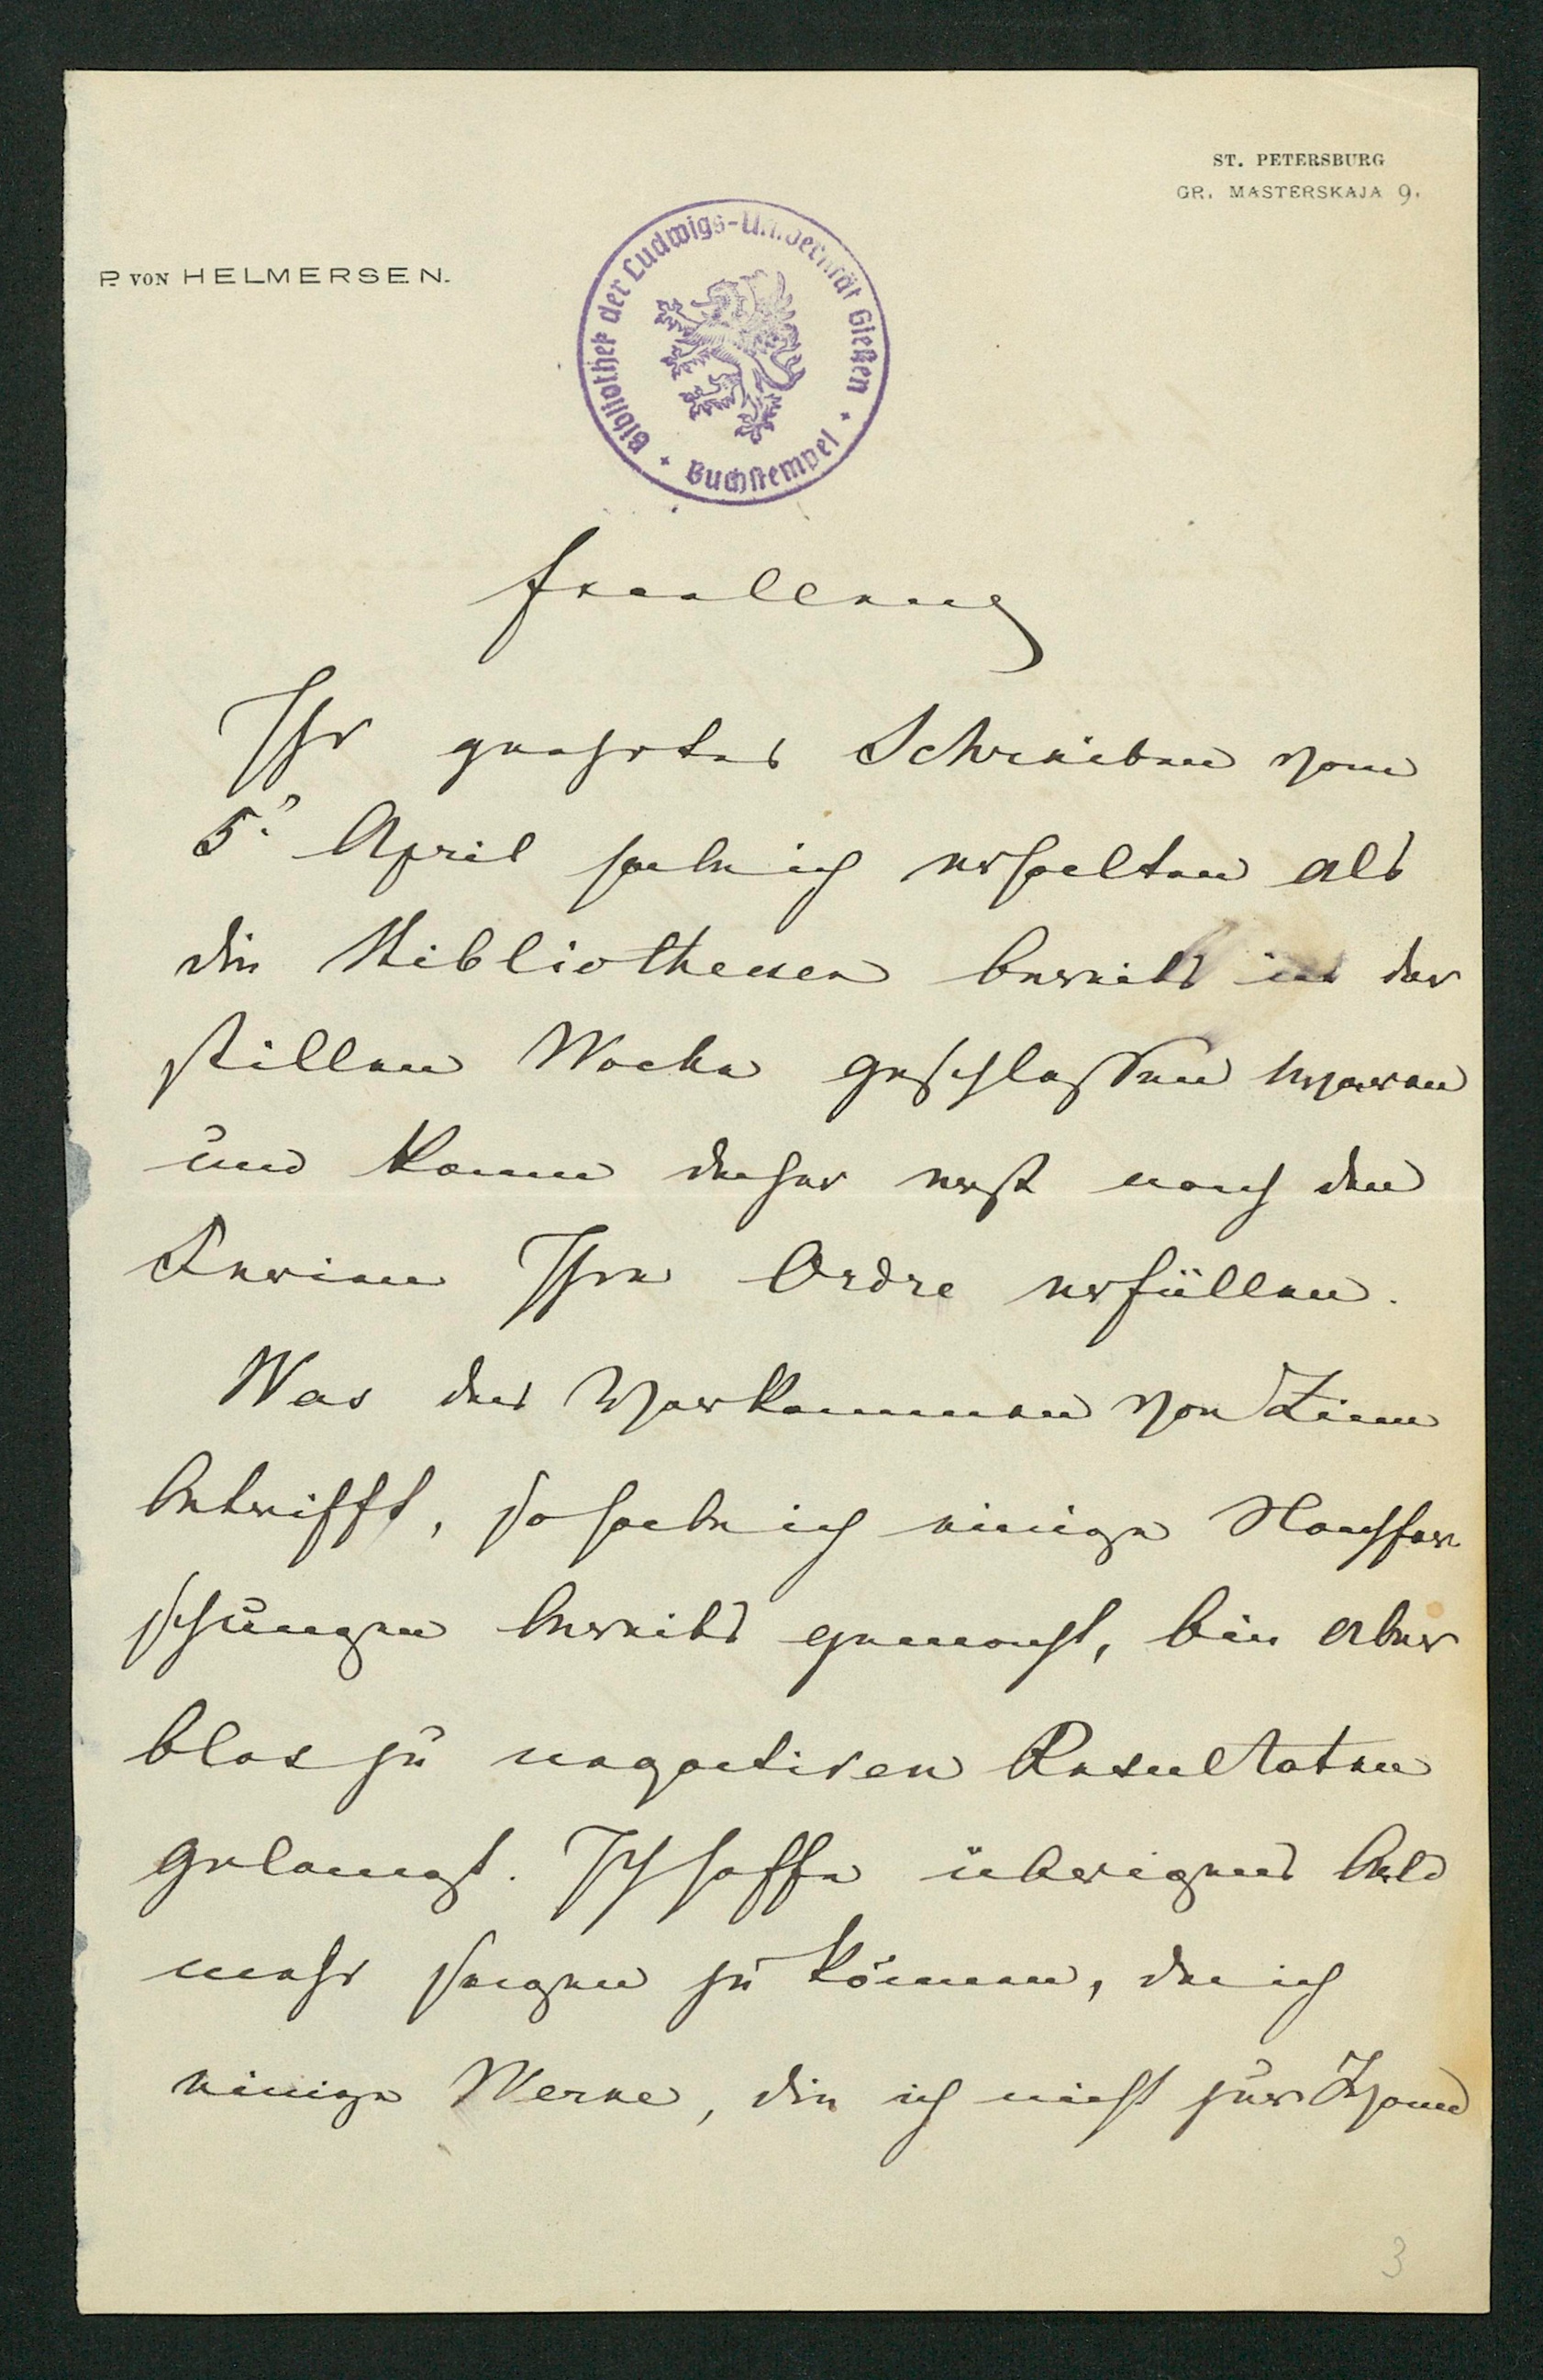 ST. PETERSBURG
GR. MASTERSKAJA 9.
P. VON HELMERSEN.
Bibliothek der Ludwigs-Universität Gießen
Buchstempel
Excellenz
Ihr geehrtes Schreiben vom
5. April habe ich erhalten als
die Bibliotheken bereits in der
stillen Woche geschlossen waren
und kann daher erst nach den
Ferien Ihre Ordre erfüllen.
Was das Vorkommen von Zinn
betrifft, so habe ich einige Nachfor
schungen bereits gemacht, bin aber
blos zu negativen Resultaten
gelangt. Ich hoffe übrigens bald
mehr sagen zu können, da ich
einige Werke, die ich nicht zur Hand
3